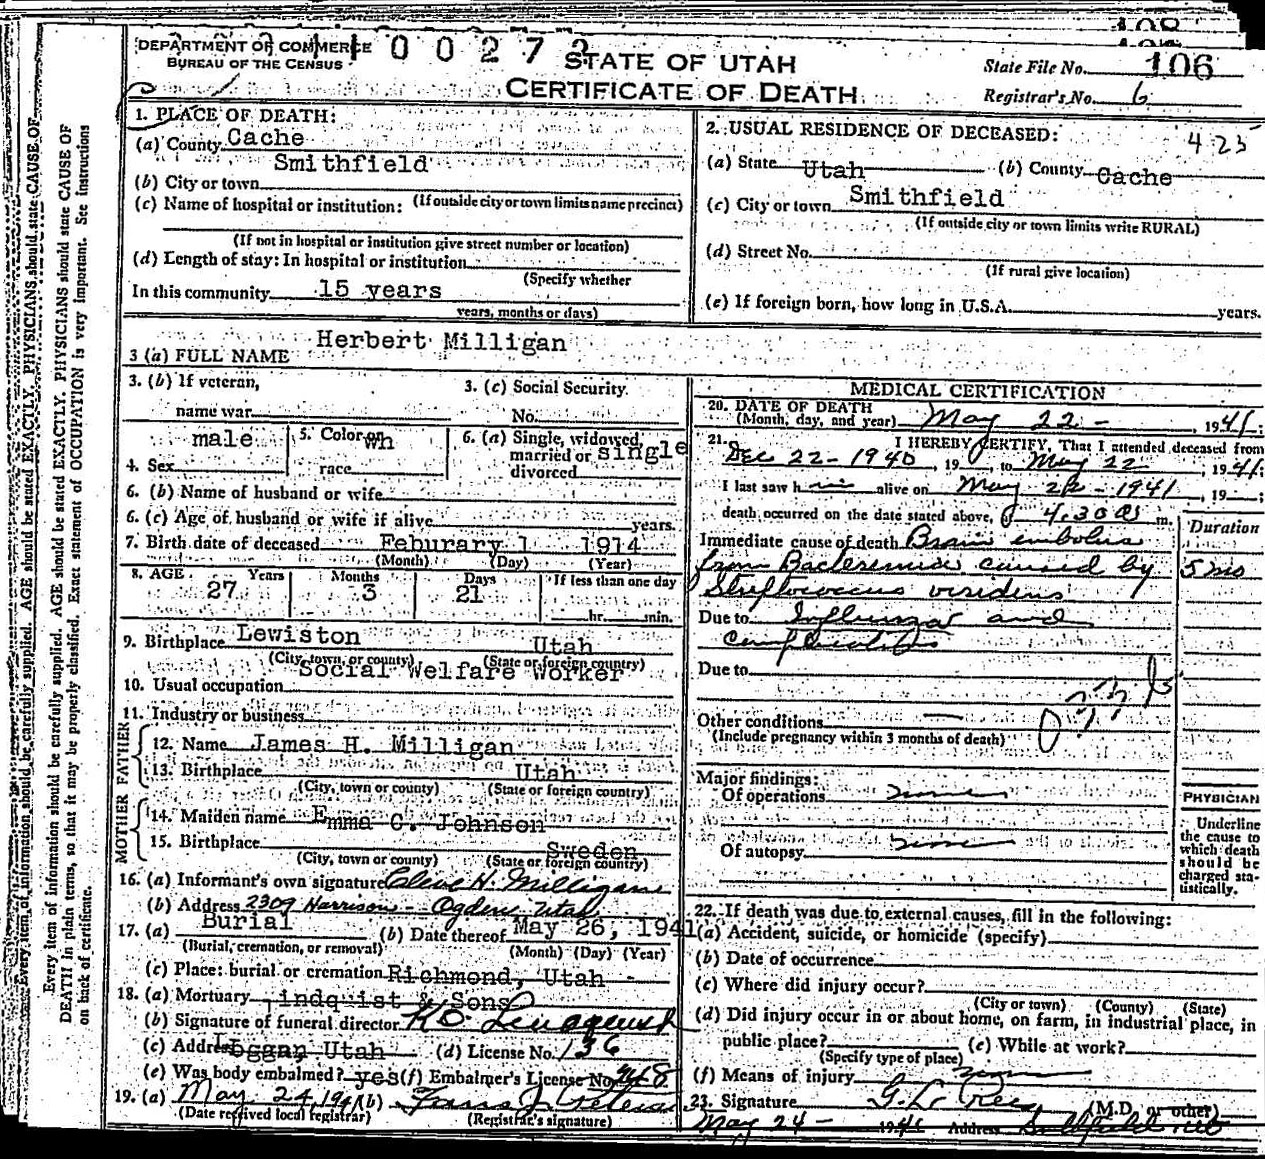 DEPARTMENT OF COMMERCE
BUREAU OF THE CENSUS
0 0 2 7
STATE OF UTAH
CERTIFICATE OF DEATH
State File No. 106
Registrar's No. 6
1. PLACE OF DEATH:
(a) County Cache
Smithfield
(b) City or town
(c) Name of hospital or institution: (If outside city or town limits name precinct)
(If not in hospital or institution give street number or location)
(d) Length of stay: In hospital or institution
(Specify whether
In this community 15 years
years, months or days)
2. USUAL RESIDENCE OF DECEASED: 423
(a) State Utah (b) County Cache
Smithfield
(c) City or town
(If outside city or town limits write RURAL)
(d) Street No.
(If rural give location)
(e) If foreign born, how long in U.S.A. years.
Herbert Milligan
3 (a) FULL NAME
3. (b) If veteran,
name war
3. (c) Social Security
No.
male
4. Sex
5. Color or wh
race
6. (a) Single, widowed,
married or single
divorced
6. (b) Name of husband or wife
6. (c) Age of husband or wife if alive years.
7. Birth date of deceased Feburary 1 1914
(Month) (Day) (Year)
8. AGE Years Months Days If less than one day
27 3 21
hr. min.
9. Birthplace Lewiston Utah
(City, town, or county) (State or foreign country)
Social Welfare Worker
10. Usual occupation
11. Industry or business
FATHER
12. Name James H. Milligan
13. Birthplace Utah
(City, town or county) (State or foreign country)
MOTHER
14. Maiden name Emma C. Johnson
15. Birthplace Sweden
(City, town or county) (State or foreign country)
16. (a) Informant's own signature Cleve H. Milligan
(b) Address 2309 Harrison - Ogden, Utah
Burial
17. (a) (b) Date thereof May 26, 1941
(Burial, cremation, or removal) (Month) (Day) (Year)
(c) Place: burial or cremation Richmond, Utah -
18. (a) Mortuary Lindquist & Sons
(b) Signature of funeral director
(c) Address Loggan, Utah (d) License No. 136
(e) Was body embalmed? yes (f) Embalmer's License No.
19. (a) May 24, 1941 (b)
(Date received local registrar) (Registrar's signature)
MEDICAL CERTIFICATION
20. DATE OF DEATH
(Month, day, and year) May 22 - , 1941;
21. I HEREBY CERTIFY, That I attended deceased from
Dec 22 - 1940, 19 , to May 22, 1941;
I last saw h im alive on May 22 - 1941, 19 ;
death occurred on the date stated above, @ 4:30 a m.
Duration
Immediate cause of death Brain embolus
from Bacteremia caused by 5 mo
Streptococcus viridens
Due to Influenza and
complications
Due to
Other conditions
(Include pregnancy within 3 months of death)
Major findings:
Of operations none
Of autopsy none
PHYSICIAN
Underline
the cause to
which death
should be
charged sta-
tistically.
22. If death was due to external causes, fill in the following:
(a) Accident, suicide, or homicide (specify)
(b) Date of occurrence
(c) Where did injury occur?
(City or town) (County) (State)
(d) Did injury occur in or about home, on farm, in industrial place, in
public place? (e) While at work?
(Specify type of place)
(f) Means of injury none
23. Signature G. L. Rees (M.D. or other)
May 24 - 1941 Address Smithfield Ut
Every item of information should be carefully supplied. AGE should be stated EXACTLY. PHYSICIANS should state CAUSE OF
DEATH in plain terms, so that it may be properly classified. Exact statement of OCCUPATION is very important. See instructions
on back of certificate.